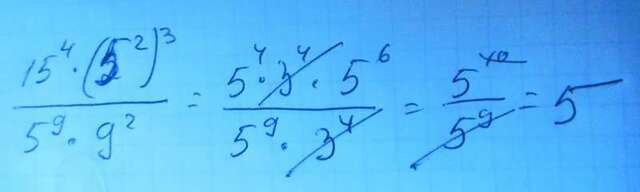 15⁴·(5²)³ / 5⁹·9² = 5⁴·3⁴·5⁶ / 5⁹·3⁴ = 5¹⁰ / 5⁹ = 5